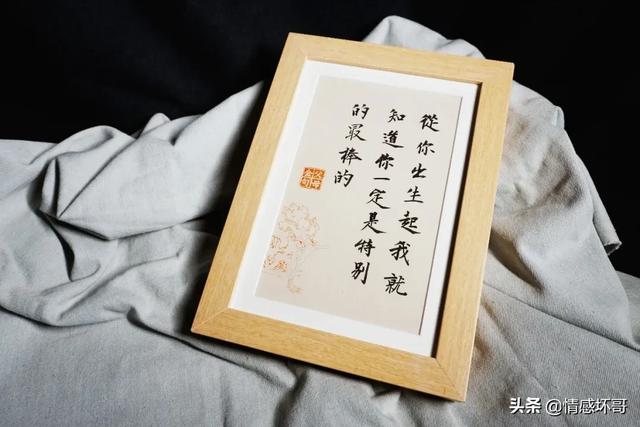 從你出生起我就
知道你一定是特別
的最棒的
父母
金句
头条 @情感坏哥